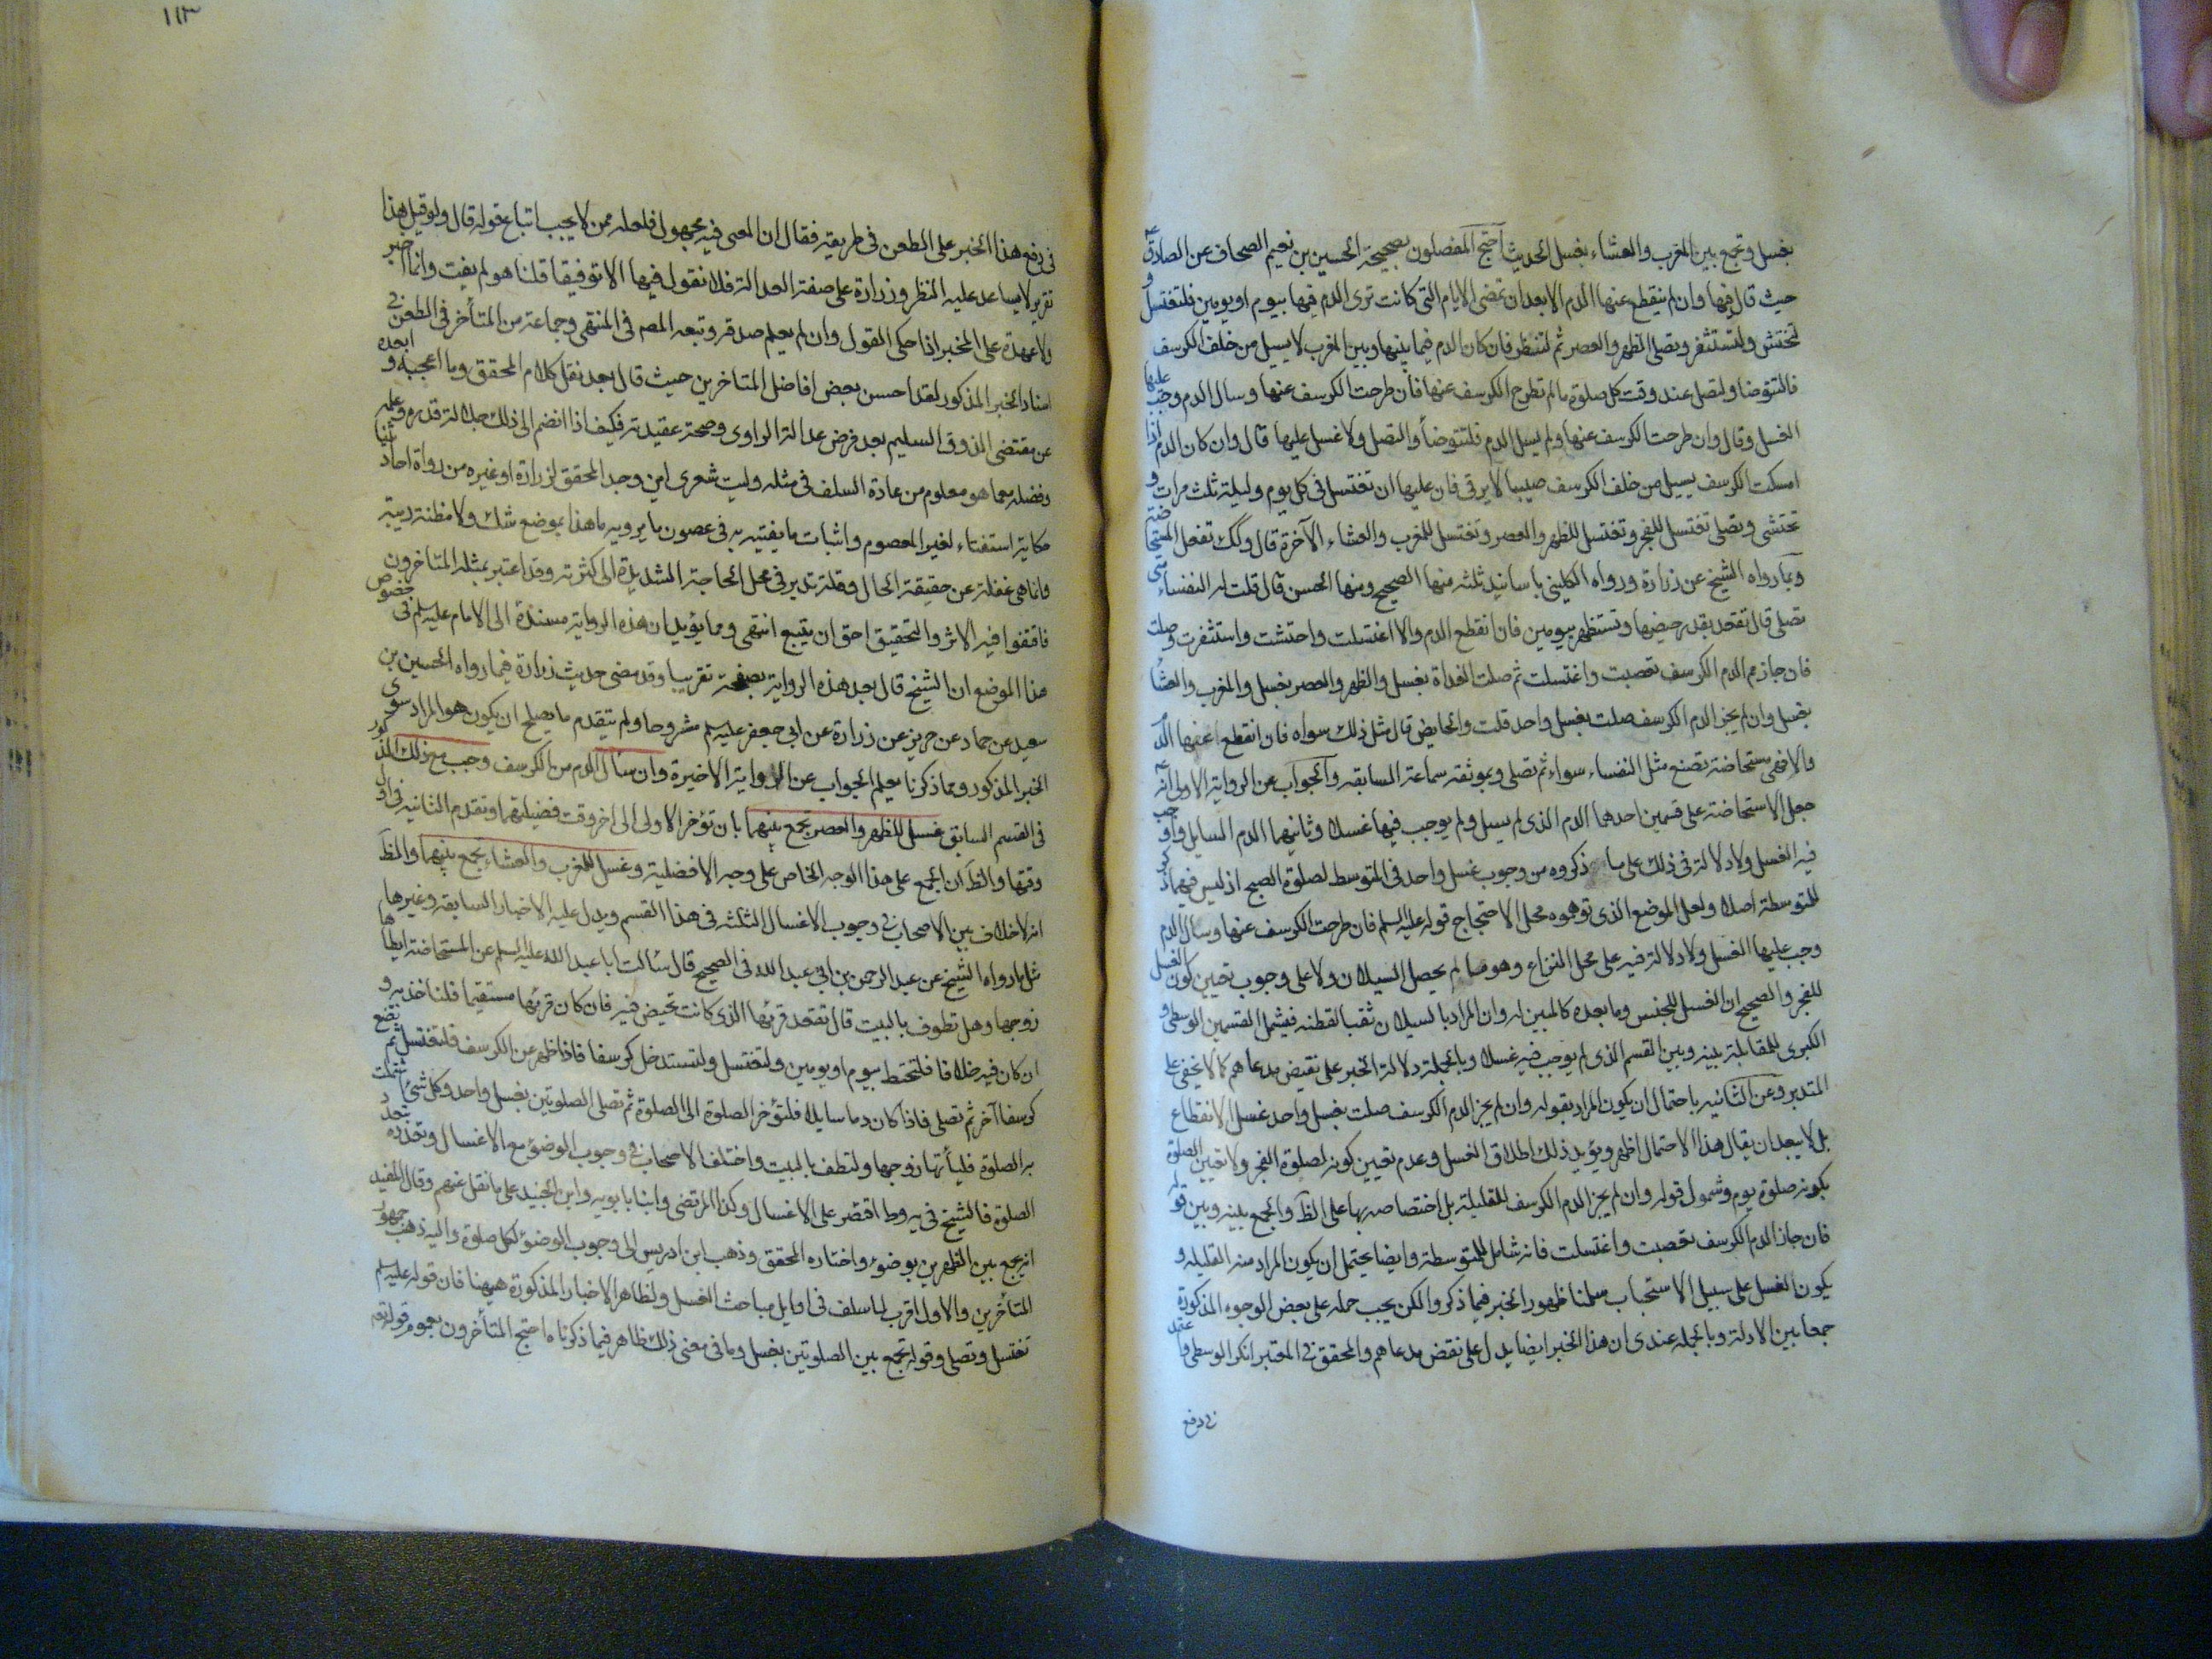 بغسل وتجمع بين المغرب والعشاء بغسل الحديث احتج المفصلون بصحيحة الحسين بن نعيم الصحاف عن الصادق ع
حيث قال فيها وان لم ينقطع عنها الدم الا بعد ان تمضى الايام التى كانت ترى الدم فيها بيوم او يومين فلتغتسل و
تحتش ولتستثفر وتصلى الظهر والعصر ثم لتنظر فان كان الدم فيما بينها وبين المغرب لا يسيل من خلف الكرسف
فلتتوضا ولتصل عند وقت كل صلوة ما لم تطرح الكرسف عنها فان طرحت الكرسف عنها وسال الدم وجب عليها
الغسل وقال وان طرحت الكرسف عنها ولم يسل الدم فلتتوضأ ولتصل ولا غسل عليها قال وان كان الدم اذا
امسكت الكرسف يسيل من خلف الكرسف صبيبا لا يرقى فان عليها ان تغتسل فى كل يوم وليلة ثلث مرات و
تحتشى وتصلى تغتسل للفجر وتغتسل للظهر والعصر وتغتسل للمغرب والعشاء الآخرة قال وكك تفعل المستحاضة
وبما رواه الشيخ عن زرارة ورواه الكلينى باسانيد ثلثه منها الصحيح ومنها الحسن قال قلت له النفساء متى
تصلى قال تقعد بقدر حيضها وتستظهر بيومين فان انقطع الدم والا اغتسلت واحتشت واستثفرت وصلت
فان جاز الدم الكرسف تعصبت واغتسلت ثم صلت الغداة بغسل والظهر والعصر بغسل والمغرب والعشا
بغسل وان لم يجز الدم الكرسف صلت بغسل واحد قلت والحايض قال مثل ذلك سواه فان انقطع عنها الدم
والا فهى مستحاضة تصنع مثل النفساء سواء ثم تصلى وبموثقه سماعة السابقه والجواب عن الرواية الاولى انه ع
جعل الاستحاضة على قسمين احدهما الدم الذى لم يسيل ولم يوجب فيها غسلا وثانيهما الدم السايل واوجب
فيه الغسل ولا دلالة فى ذلك على ما ذكروه من وجوب غسل واحد فى المتوسط لصلوة الصبح اذ ليس فيها ذكر
للمتوسطة اصلا ولعل الموضع الذى توهموه محل الاحتجاج قوله عليه السلم فان طرحت الكرسف عنها وسال الدم
وجب عليها الغسل ولا دلالة فيه على محل النزاع وهو ما لم يحصل السيلان ولا على وجوب تعيين كون الغسل
للفجر والصحيح ان الغسل للجنس وما بعده كالمبين له وان المراد بالسيلان ثقب القطنه فيشمل القسمين الوسطى و
الكبرى للمقابلة بينه وبين القسم الذى لم يوجب فيه غسلا وبالجملة دلالة الخبر على نقيض مدعاهم كما لا يخفى على
المتدبر وعن الثانيه باحتمال ان يكون المراد بقوله وان لم يجز الدم الكرسف صلت بغسل واحد غسل الانقطاع
بل لا يبعد ان يقال هذا الاحتمال اظهر ويؤيد ذلك اطلاق الغسل وعدم تعيين كونه لصلوة الفجر ولا تعيين الصلوة
بكونه صلوة يوم وشمول قوله وان لم يجز الدم الكرسف للقليلة بل اختصاصه بها على الظ والجمع بينه وبين قوله
فان جاز الدم الكرسف تعصبت واغتسلت فانه شامل للمتوسطة وايضا يحتمل ان يكون المراد منه القليله و
يكون الغسل على سبيل الاستحباب سلمنا ظهور الخبر فيما ذكروا لكن يجب حمله على بعض الوجوه المذكورة
جمعا بين الادلة وبالجمله عندى ان هذا الخبر ايضا يدل على نقض مدعاهم والمحقق فى المعتبر انكر الوسطى واعتمد
فى دفع
١١٣
فى دفع هذا الخبر على الطعن فى طريقه فقال ان المعنى فيه مجهول فلعله ممن لا يجب اتباع قوله قال ولو قيل هذا
تقرير لا يساعد عليه النظر وزرارة على صفة العدالة فلا نقول فيها الا توفيقا قلنا هو لم يفت وانما اخبر
ولا عهدة على المخبر اذا حكى القول وان لم يعلم صدقه وتبعه المصه فى المنتهى وجماعة من المتأخر فى الطعن فى
اسناد الخبر المذكور لقد احسن بعض افاضل المتاخرين حيث قال بعد نقل كلام المحقق وما اعجبه و ابعده
عن مقتضى الذوق السليم بعد فرض عدالة الراوى وصحة عقيدته فكيف اذا انضم الى ذلك جلالة قدره وعلمه
وفضله مما هو معلوم من عادة السلف فى مثله وليت شعرى اين وجد المحقق لزرارة او غيره من رواة احاديثنا
حكاية استفتاء لغير المعصوم واثبات ما يفتيه به فى غصون ما يرويه ما هذا بموضع شك ولا مظنة ريبة
وانما هى غفلة عن حقيقة الحال وقلة تدبر فى محل الحاجة الشديدة الى كثرته وقد اعتبر بمثله المتاخرون
فاقفوا فيه الاثر والتحقيق احق ان يتبع انتهى ومما يؤيد ان هذه الرواية مسندة الى الامام عليه السلم فى خصوص
هذا الموضع ان الشيخ قال بعد هذه الرواية بصفحة تقريبا وقد مضى حديث زرارة فيما رواه الحسين بن
سعيد عن حماد عن حريز عن زرارة عن ابى جعفر عليه السلم مشروحا ولم يتقدم ما يصلح ان يكون هو المراد سوى
الخبر المذكور ومما ذكرنا يعلم الجواب عن الرواية الاخيرة وان سال الدم من الكرسف وجب مع ذلك المذكور
فى القسم السابق غسل للظهر والعصر تجمع بينهما بان تؤخر الاولى الى اخر وقت فضيلتهما وتقدم الثانيه فى اول
وقتها والظ ان الجمع على هذا الوجه الخاص على وجه الافضلية وغسل للمغرب والعشاء تجمع بينهما والظ
انه لا خلاف بين الاصحاب فى وجوب الاغسال الثلثه فى هذا القسم ويدل عليه الاخبار السابقه وغيرها
مثل ما رواه الشيخ عن عبد الرحمن بن ابى عبد الله فى الصحيح قال سألت ابا عبد الله عليه السلم عن المستحاضة ايطاها
زوجها وهل تطوف بالبيت قال تقعد قرئها الذى كانت تحيض فيه فان كان قرئها مستقيما فلتاخذ به و
ان كان فيه خلافا فلتحتط بيوم او يومين ولتغتسل ولتستدخل كرسفا فاذا ظهر عن الكرسف فلتغتسل ثم تضع
كرسفا آخر ثم تصلى فاذا كان دما سايلا فلتؤخر الصلوة الى الصلوة ثم تصلى الصلوتين بغسل واحد وكل شئ استحلت
به الصلوة فليأتها زوجها ولتطف بالبيت واختلف الاصحاب فى وجوب الوضوء مع الاغسال وتعدده بتعدد
الصلوة فالشيخ فى يه وط اقتصر على الاغسال وكذا المرتضى وابنا بابويه وابن الجنيد على ما نقل عنهم وقال المفيد
انه يجمع بين الظهرين بوضوء واختاره المحقق وذهب ابن ادريس الى وجوب الوضوء لكل صلوة واليه ذهب جمهور
المتأخرين والاول اقرب لما سلف فى اوايل مباحث الغسل ولظاهر الاخبار المذكورة ههنا فان قوله عليه السلم
تغتسل وتصلى وقوله تجمع بين الصلوتين بغسل وما فى معنى ذلك ظاهر فيما ذكرناه احتج المتأخرون بعموم قوله تع